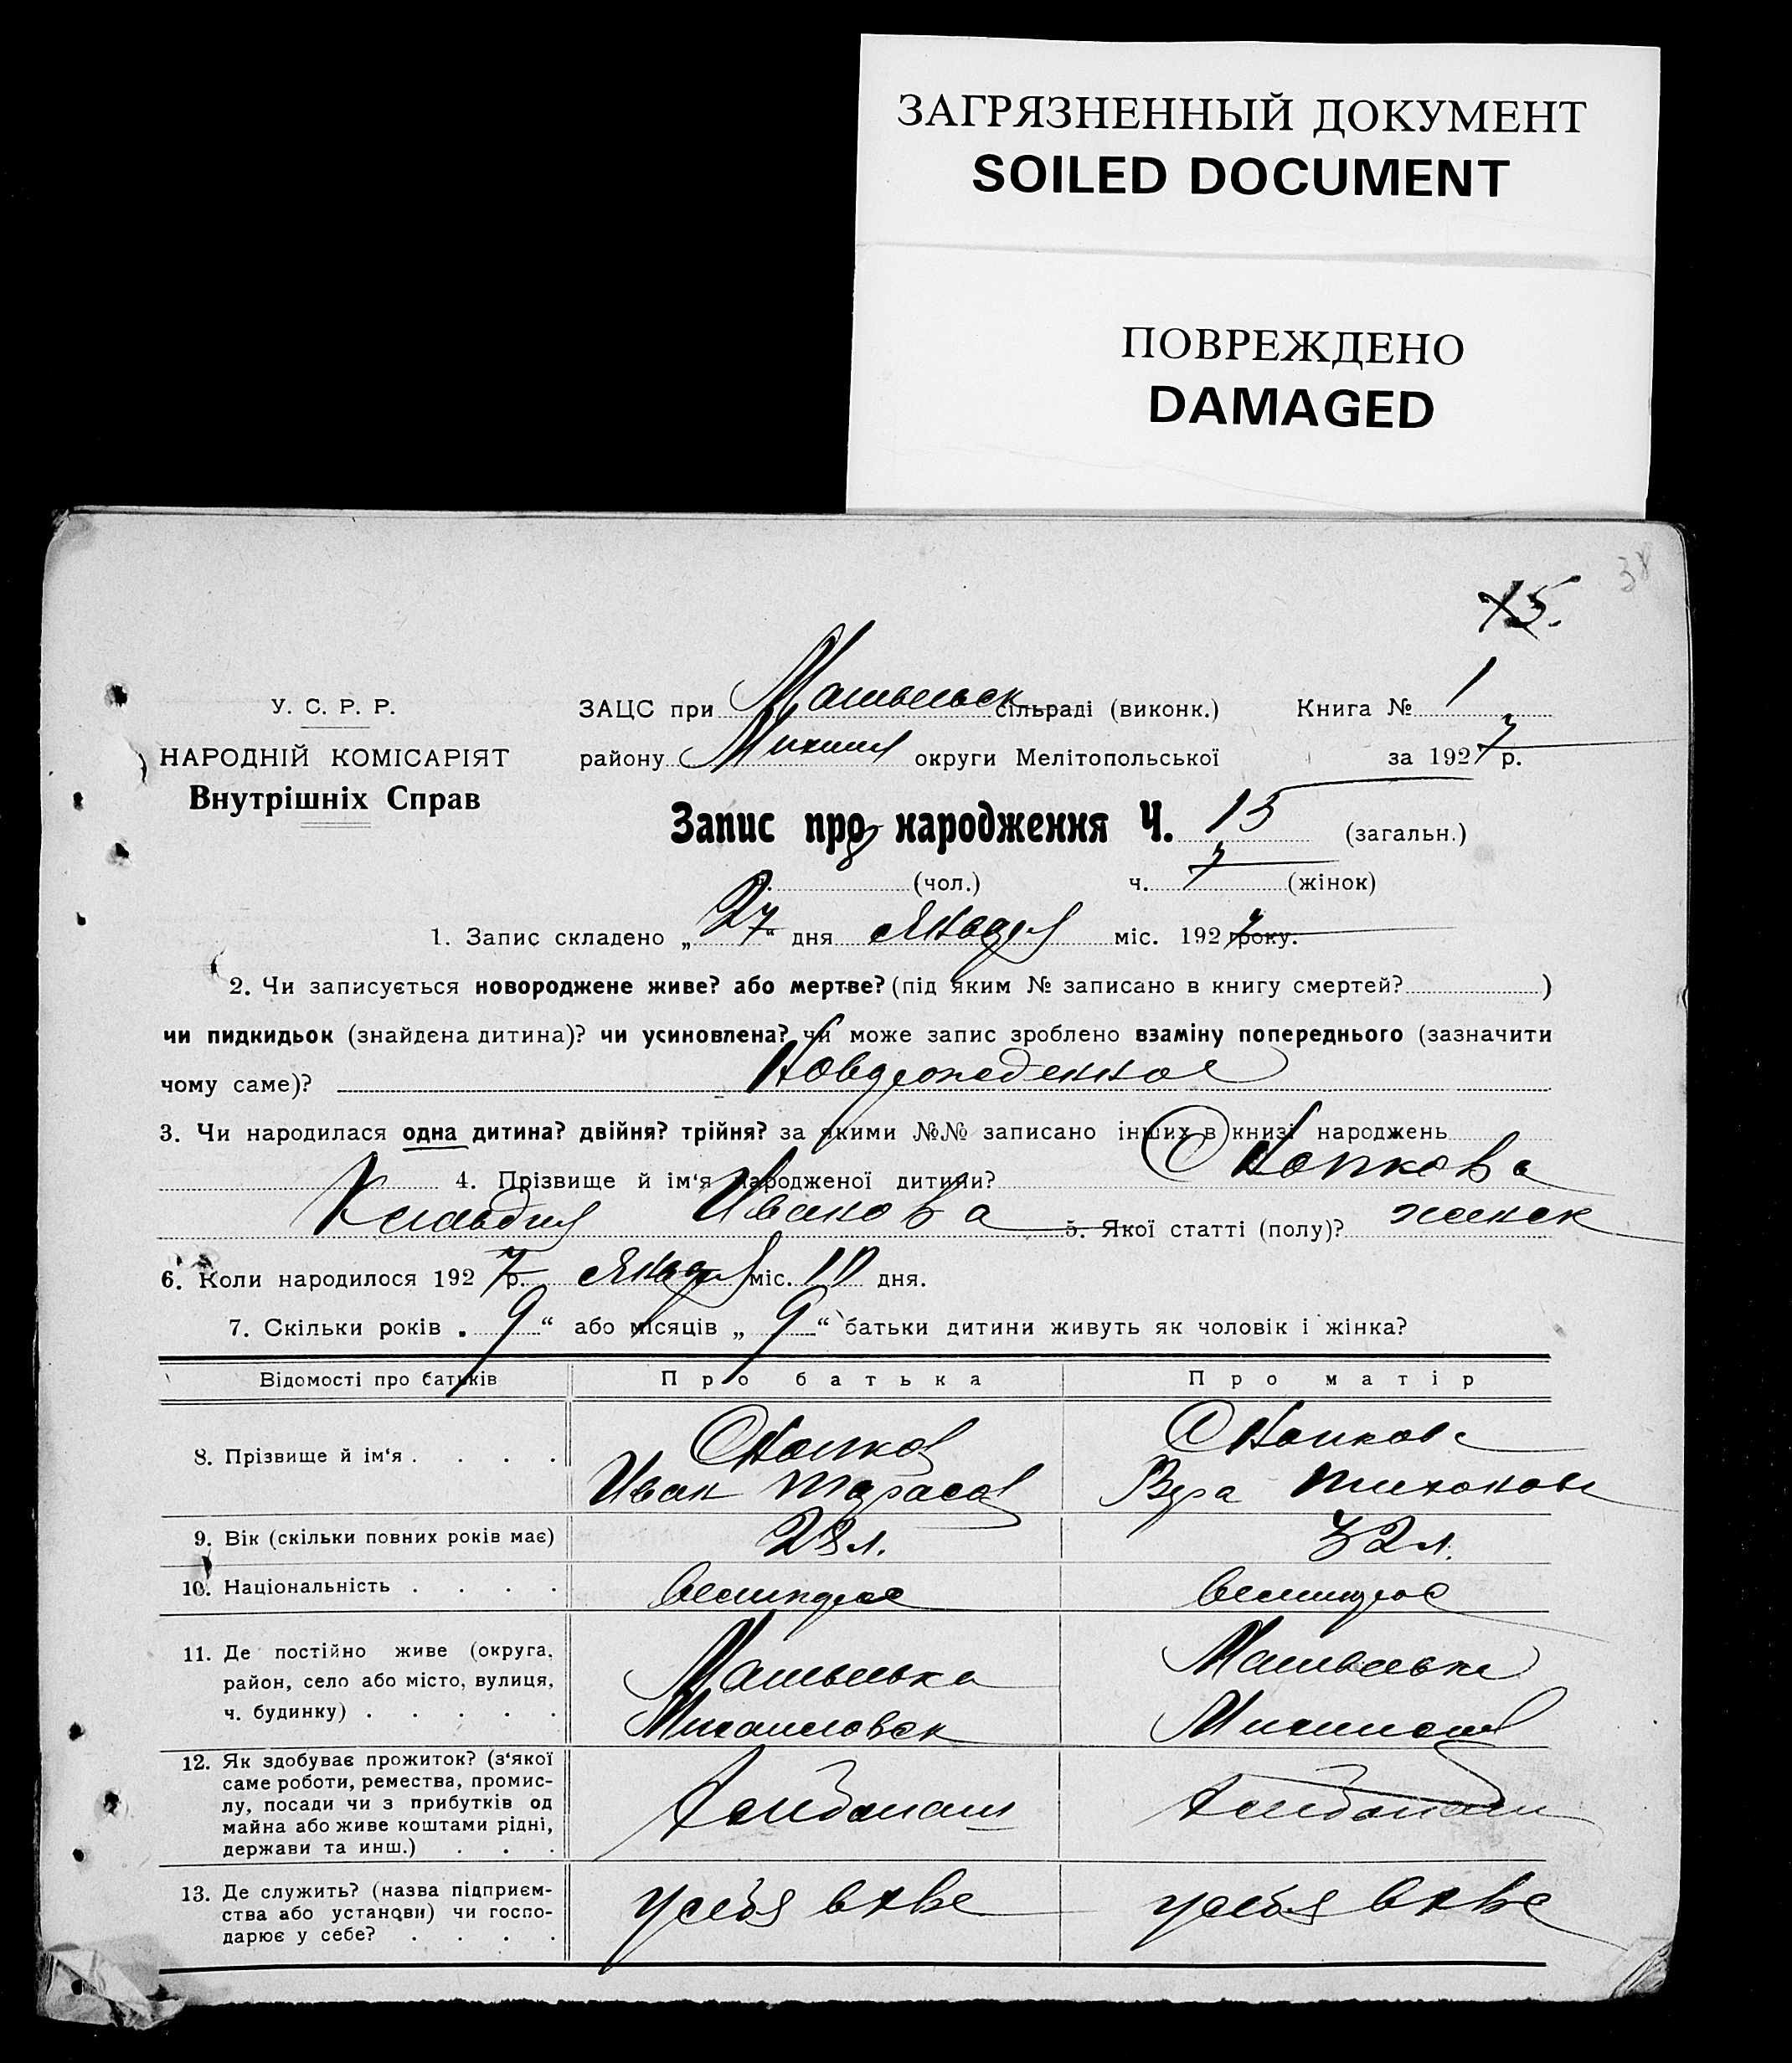 ЗАГРЯЗНЕННЫЙ ДОКУМЕНТ
SOILED DOCUMENT
ПОВРЕЖДЕНО
DAMAGED
38
15.
У. С. Р. Р.
НАРОДНІЙ КОМІСАРІЯТ
Внутрішніх Справ
ЗАЦС при Матвеевск сільраді (виконк.) Книга № 1
району округи Мелітопольської за 1927 р.
Запис про народження Ч. 15 (загальн.)
(чол.) ч. 7 (жінок)
1. Запис складено „27“ дня Января міс. 1927 року.
2. Чи записується новороджене живе? або мертве? (під яким № записано в книгу смертей? )
чи пидкидьок (знайдена дитина)? чи усиновлена? чи може запис зроблено взаміну попереднього (зазначити
чому саме)?Новрожденное
3. Чи народилася одна дитина? двійня? трійня? за якими №№ записано інших в книзі народжень
4. Прізвище й ім‘я народженої дитини? Снопкова
Клавдия Иванова 5. Якої статті (полу)? женск
6. Коли народилося 1927 р. Января міс. 10 дня.
7. Скільки років „9“ або місяців „9“ батьки дитини живуть як чоловік і жінка?
Відомості про батьків Про батька Про матір
8. Прізвище й ім‘я . . . . Снопков Снопкова
Иван Тарасов Вера Тихонова
9. Вік (скільки повних років має) 28 л. 32 л.
10. Національність . . . . великорос великорос
11. Де постійно живе (округа, Матвеевка Матвеевка
район, село або місто, вулиця,
ч. будинку) . . . . . Михайловск
12. Як здобуває прожиток? (з‘якої
саме роботи, ремества, промис-
лу, посади чи з прибутків од
майна або живе коштами рідні, Хлебопаш Хлебопаш
держави та инш.) . . .
13. Де служить? (назва підприєм-
ства або установи) чи госпо-
дарює у себе? . . . .